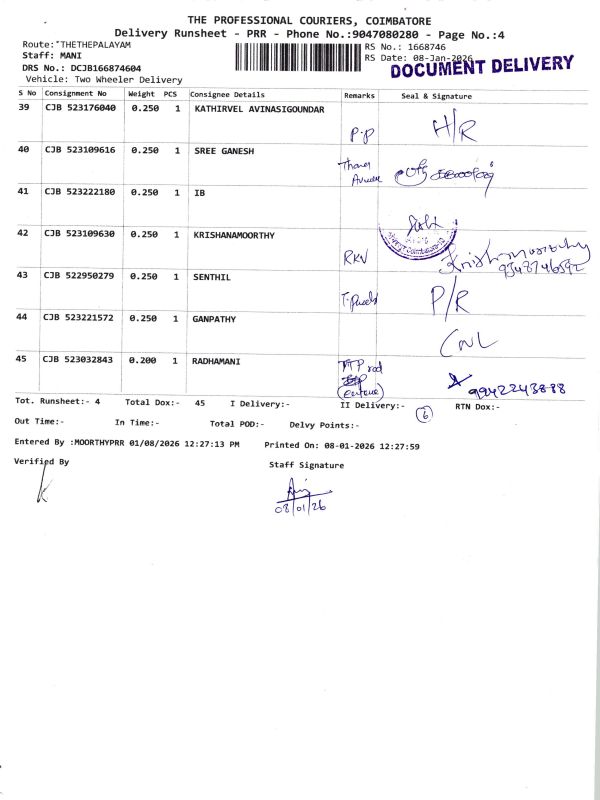 THE PROFESSIONAL COURIERS, COIMBATORE
Delivery Runsheet - PRR - Phone No.:9047080280 - Page No.:4
Route:"THETHEPALAYAM
RS No.: 1668746
Staff: MANI
RS Date: 08-Jan-2026
DOCUMENT DELIVERY
DRS No.: DCJB166874604
Vehicle: Two Wheeler Delivery
S No Consignment No Weight PCS Consignee Details Remarks Seal & Signature
39 CJB 523176040 0.250 1 KATHIRVEL AVINASIGOUNDAR
P.P H/R
40 CJB 523109616 0.250 1 SREE GANESH
41 CJB 523222180 0.250 1 IB
42 CJB 523109630 0.250 1 KRISHANAMOORTHY
RKV Krishnamoorthy
9345746592
43 CJB 522950279 0.250 1 SENTHIL
P/R
44 CJB 523221572 0.250 1 GANPATHY
CNL
45 CJB 523032843 0.200 1 RADHAMANI
9942243888
Tot. Runsheet:- 4 Total Dox:- 45 I Delivery:- II Delivery:- 6 RTN Dox:-
Out Time:- In Time:- Total POD:- Delvy Points:-
Entered By :MOORTHYPRR 01/08/2026 12:27:13 PM Printed On: 08-01-2026 12:27:59
Verified By Staff Signature
08/01/26